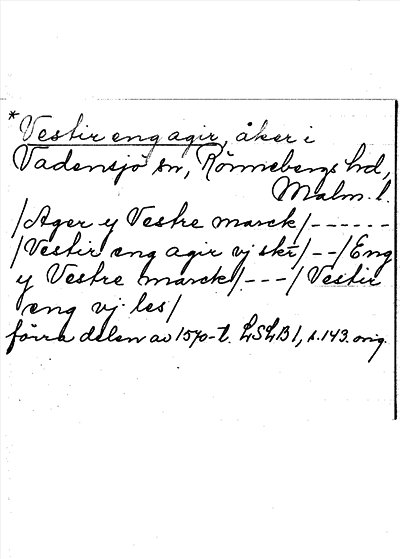 *Vestir eng agir, åker i
Vadensjö sn, Rönnebergs hd,
Malm. l.
/Ager y Vestre marck/------
/Vestir eng agir vj skr̄/--/Eng
y Vestre marck/---/Vestir
eng vj les/
förra delen av 1570-t. LSLB 1, s. 143. orig.